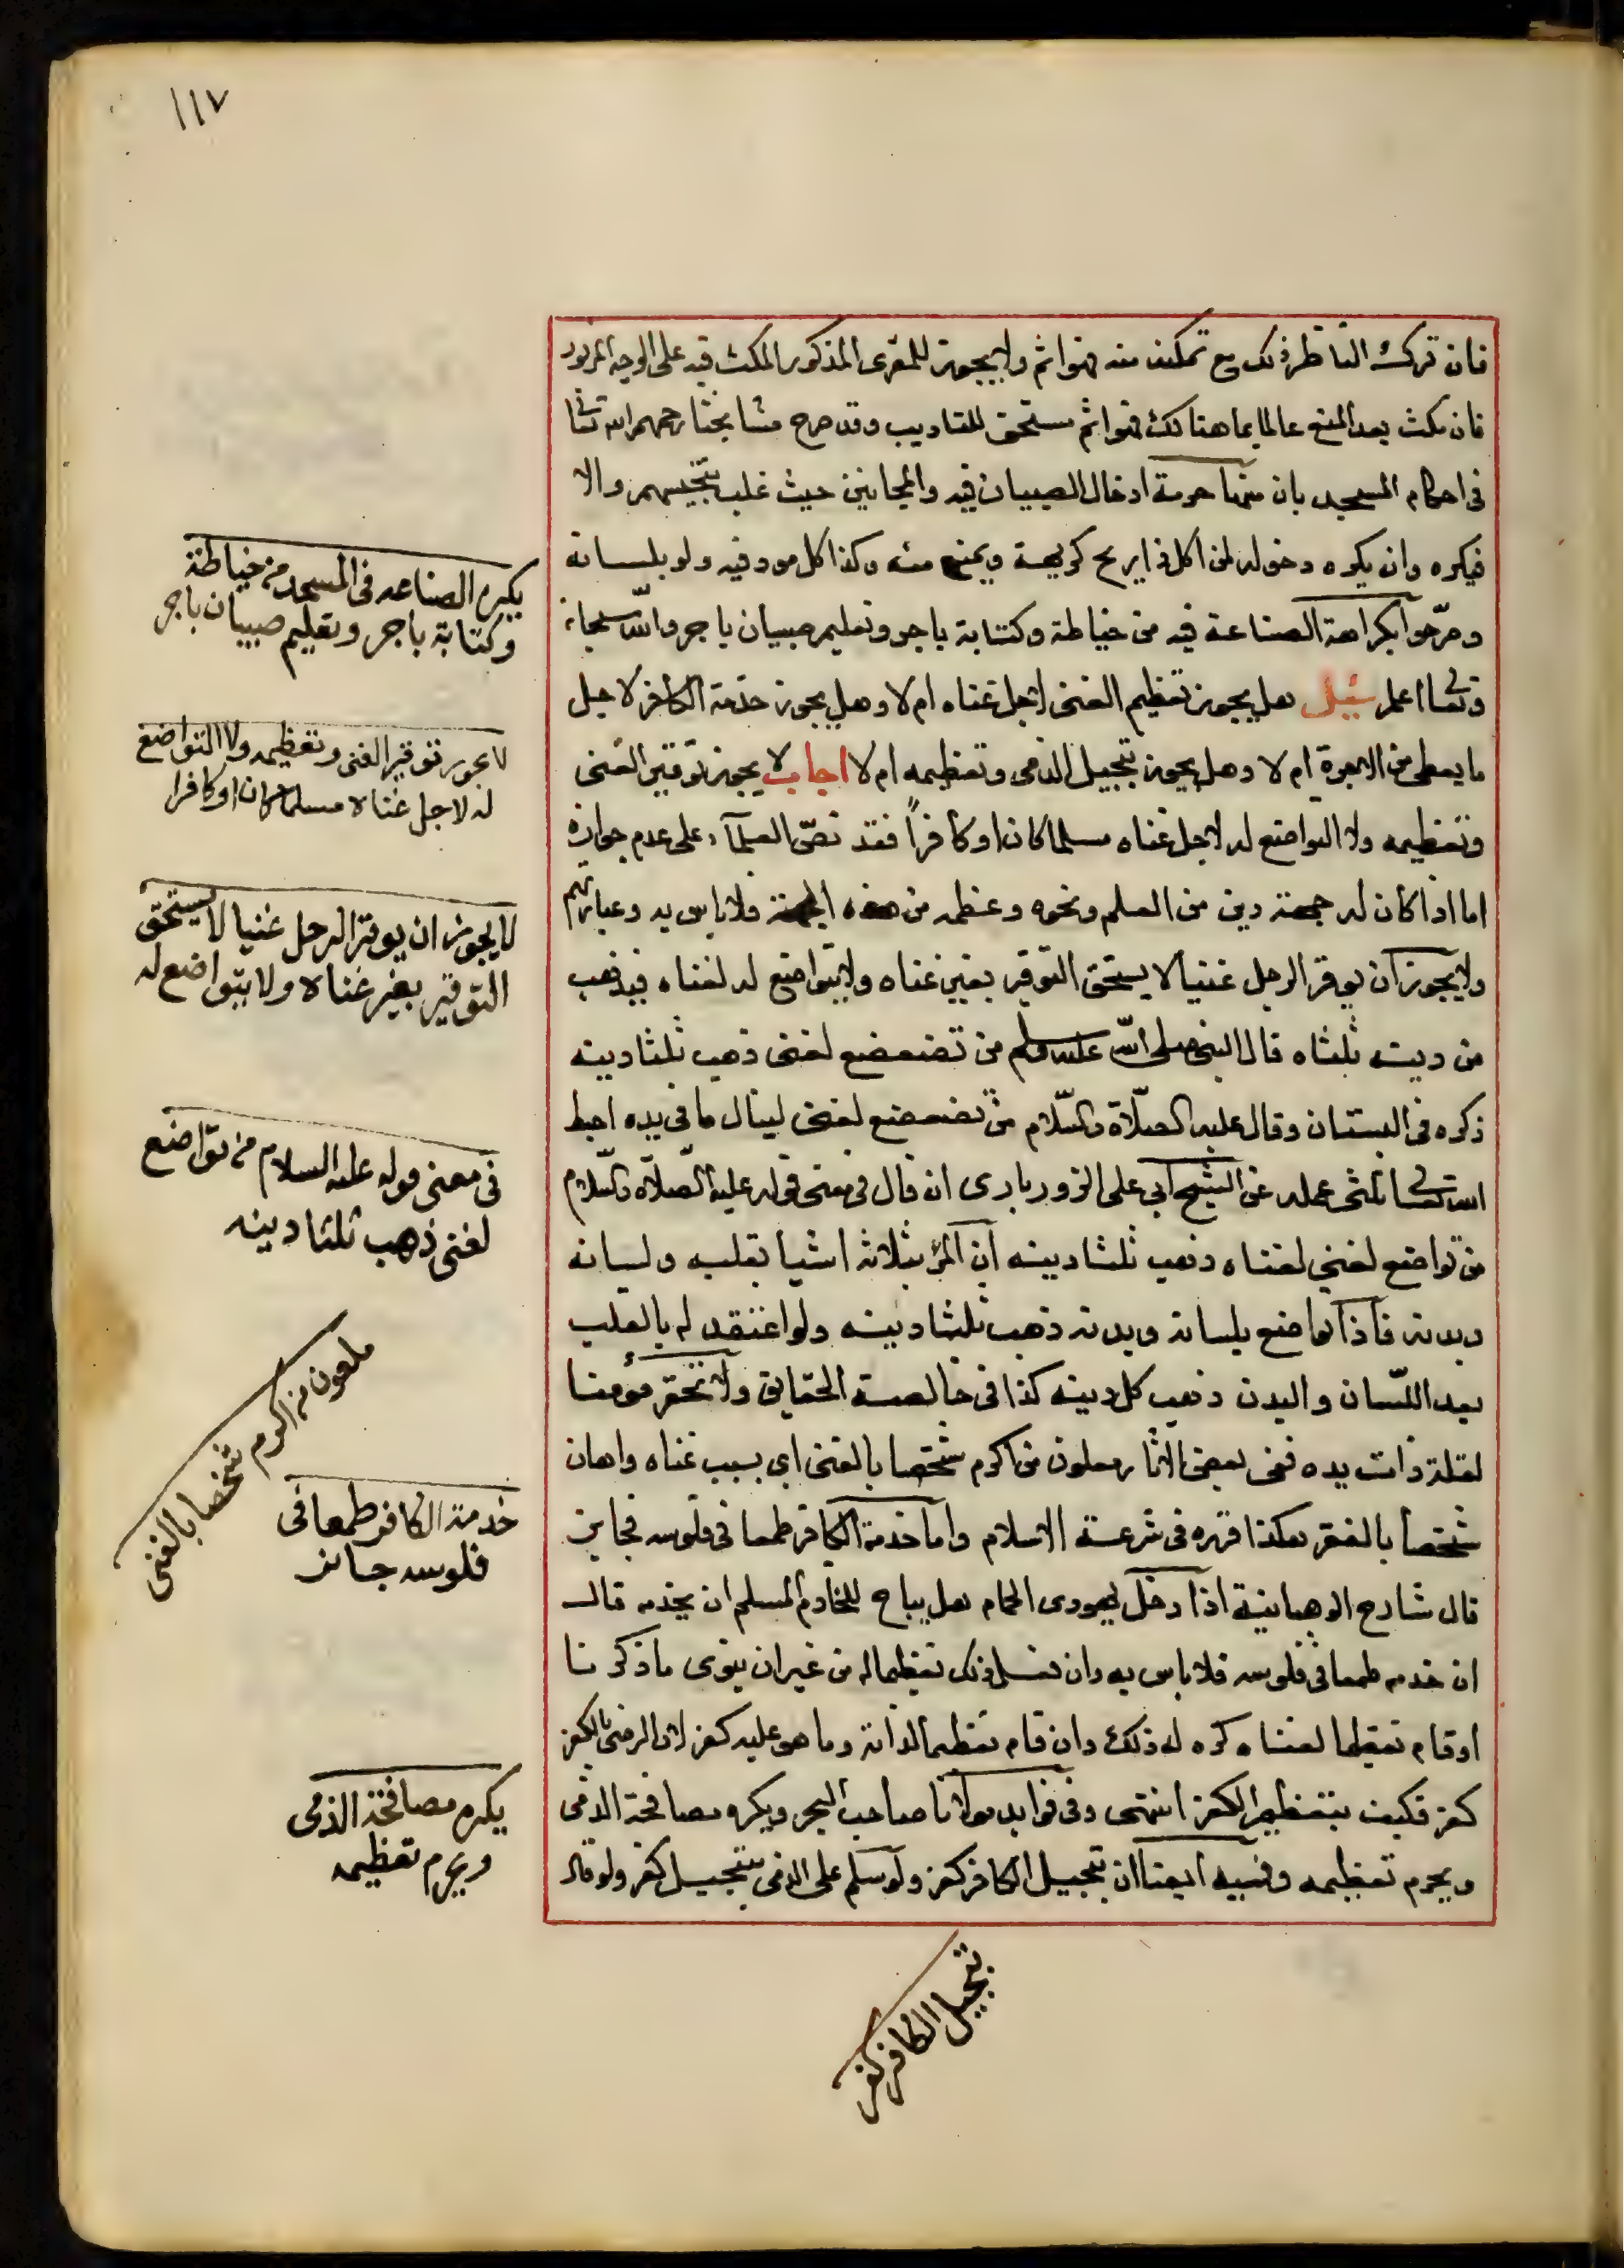 ١١٧
فان ترك الناظر ذلك مع تمكنه منه فهو اثم ولا يجوز للمقرى المذكور المكث فيه على الوجه المزبور
فان مكث بعد المنع عالما بما هنالك فهو اثم مستحق للتاديب وقد صرح مشايخنا رحمهم الله تعالى
فى احكام المسجد بان منها حرمة ادخال الصبيان فيه والمجانين حيث غلب تنجيسهم والا
فيكره وان يكره دخوله لمن اكل ذا ريح كريهة ويمنع منه وكذا كل موذ فيه ولو بلسانه
وصرّحوا بكراهة الصناعة فيه من خياطة وكتابة باجر وتعليم صبيان باجر والله سبحانه
وتعالى اعلم سئيل هل يجوز تعظيم الغنى لاجل غناه ام لا وهل يجوز خدمة الكافر لاجل
ما يعطى من الاجرة ام لا وهل يجوز تبجيل الذمى وتعظيمه ام لا اجاب لا يجوز توقير الغنى
وتعظيمه ولا التواضع له لاجل غناه مسلما كان او كافراً فقد نصّ العلمآء على عدم جوازه
اما اذا كان له جهة دين من العلم ونحوه وعظمه من هذه الجهة فلا باس به وعبارتهم
ولا يجوز ان يوقر الرجل غنيا لا يستحق التوقير بغير غناه ولا يتواضع له لغناه فيذهب
من دينه ثلثاه قال النبى صلى الله عليه وسلم من تضعضع لغنى ذهب ثلثا دينه
ذكره فى البستان وقال عليه الصلاة والسلام من تضعضع لغنى لينال ما فى يده احبط
الله تعالى ثلثى عمله عن الشيخ ابى على الزوربارى ان قال فى معنى قوله عليه الصلاة والسلام
من تواضع لغنى لغناه ذهب ثلثا دينه ان المرء بثلاثة اشيا بقلبه ولسانه
وبدنه فاذا تواضع بلسانه وبدنه ذهب ثلثا دينه ولو اعتقد له بالقلب
بعد اللسان والبدن ذهب كل دينه كذا فى خالصة الحقايق ولا تحقر مؤمنا
لقلة ذات يده ففى بعض الاثار ملعون من اكرم شخصا بالغنى اى بسبب غناه واهان
شخصا بالفقر هكذا قرره فى شرعة الاسلام واما خدمة الكافر طمعا فى فلوسه فجايز
قال شارح الوهبانية اذا دخل يهودى الحمام هل يباح للخادم المسلم ان يخدمه قال
ان خدمه طمعا فى فلوسه فلا باس به وان فعل ذلك تعظيما له من غير ان ينوى ما ذكرنا
او قام تعظيما لغناه كره له ذلك وان قام تعظيما لذاته وما هو عليه كفر لان الرضى بالكفر
كفر فكيف بتعظيم الكفر انتهى وفى فوايد مولانا صاحب البحر ويكره مصافحة الذمى
ويحرم تعظيمه وفيه ايضا ان تبجيل الكافر كفر ولو سلم على الذمى تبجيلا كفر ولو قال
يكره الصناعه فى المسجد من خياطة
وكتابة باجر وتعليم صبيان باجر
لا يجوز توقير الغنى وتعظيمه ولا التواضع
له لاجل غناه مسلما كان او كافرا
لا يجوز ان يوقر الرجل غنيا لا يستحق
التوقير بغير غناه ولا يتواضع له
فى معنى قوله عليه السلام من تواضع
لغنى ذهب ثلثا دينه
ملعون من اكرم شخصا بالغنى
خدمة الكافر طمعا فى
فلوسه جائز
يكره مصافحة الذمى
ويحرم تعظيمه
تبجيل الكافر كفر